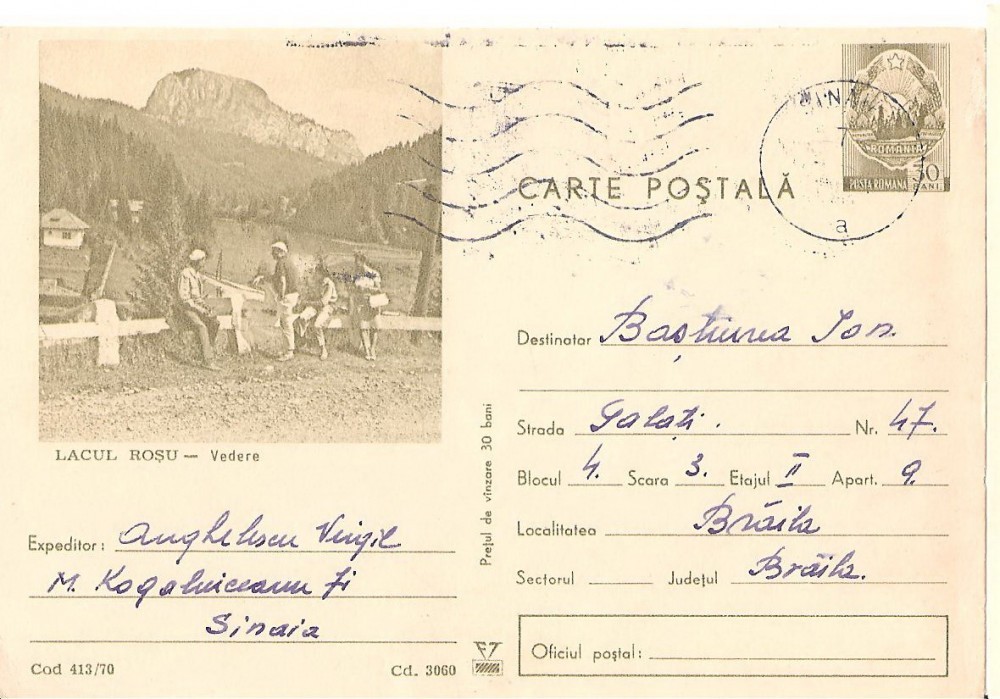 CARTE POŞTALĂ
ROMANIA
POSTA ROMANA 30 BANI
a
LACUL ROŞU — Vedere
Expeditor: Anghelescu Virgil
M. Kogalniceanu
Sinaia
Cod 413/70
Cd. 3060
Preţul de vînzare 30 bani
Destinatar Ion
Strada Galaţi. Nr. 47.
Blocul 4. Scara 3. Etajul II Apart. 9.
Localitatea Brăila
Sectorul Judeţul Brăila.
Oficiul poştal: